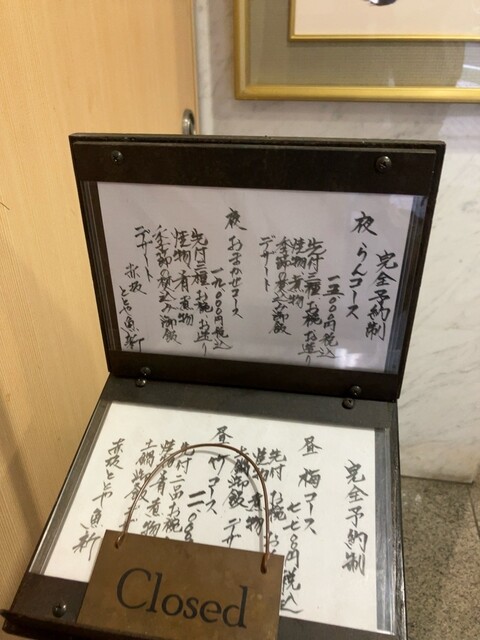 完全予約制
夜 らんコース
一三〇〇〇円税込
先付三種 お椀 お造り
焼物 煮物
季節の炊込み御飯
デザート
夜 おまかせコース
一九〇〇〇円税込
先付三種 お椀 お造り
焼物 肴 煮物
季節の炊込み御飯
デザート
赤坂 ととや魚新
完全予約制
昼 梅コース
七七〇〇円税込
先付 お椀 お
焼物 煮物
御飯 デザ
昼 竹コース
先付二品 お椀
焼物 肴 煮物
土鍋御飯 デ
赤坂 ととや魚新
Closed